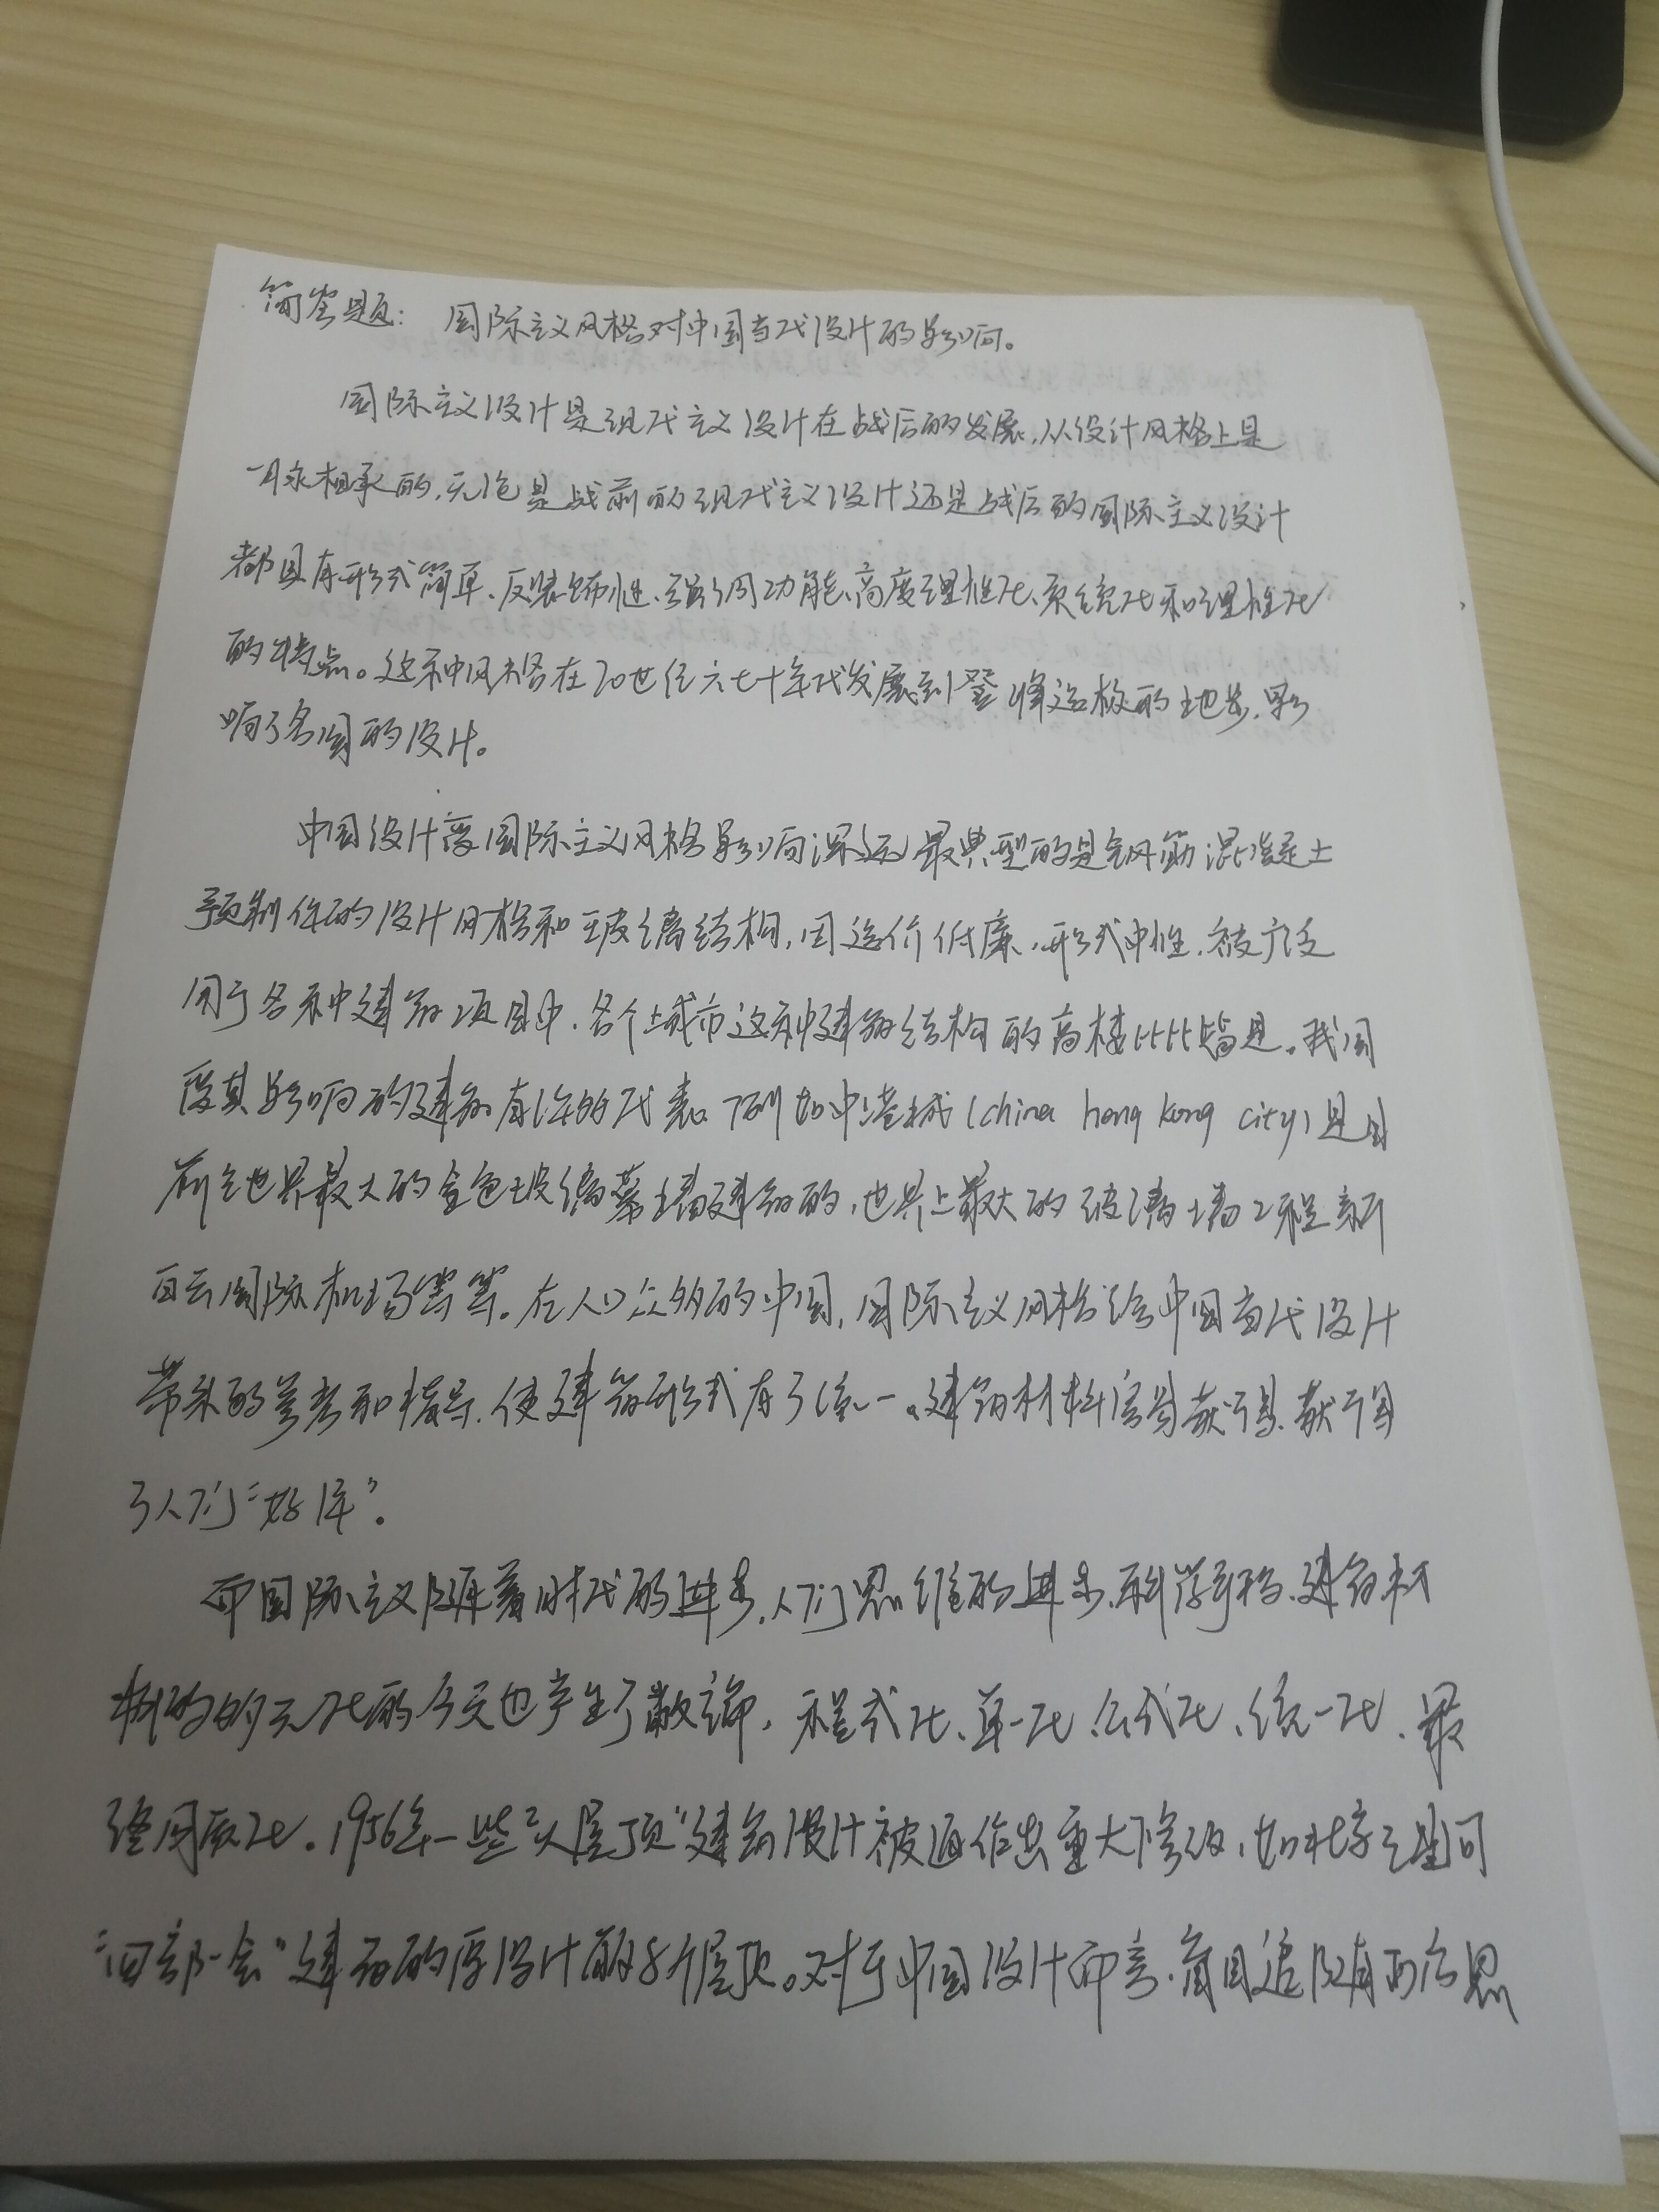 简答题： 国际主义风格对中国当代设计的影响。
国际主义设计是现代主义设计在战后的发展，从设计风格上是
一脉相承的，无论是战前的现代主义设计还是战后的国际主义设计
都具有形式简单、反装饰性、强调功能、高度理性化、系统化和理性化
的特点。这种风格在20世纪六七十年代发展到登峰造极的地步，影
响了各国的设计。
中国设计受国际主义风格影响深远，最典型的是钢筋混凝土
预制件的设计风格和玻璃结构，因造价低廉，形式中性，被广泛
用于各种建筑项目中，各个城市这种建筑结构的高楼比比皆是。我国
受其影响的建筑有许多代表。例如中港城（china hong kong city）是目
前全世界最大的金色玻璃幕墙建筑的，世界上最大的玻璃墙工程新
白云国际机场等等。在人口众多的中国，国际主义风格给中国当代设计
带来的参考和指导，使建筑形式有了统一，建筑材料容易获得，获得
了人们“好评”。
而国际主义随着时代的进步，人们思维的进步，科学、建筑材
料的多元化的今天也产生了弊端，程式化、单一化、公式化、统一化，最
终同质化。1956年一些“大屋顶”建筑设计被迫作出重大修改，如北京三里河
“四部一会”建筑的原设计的大屋顶。对于中国设计而言，盲目追随有所反思